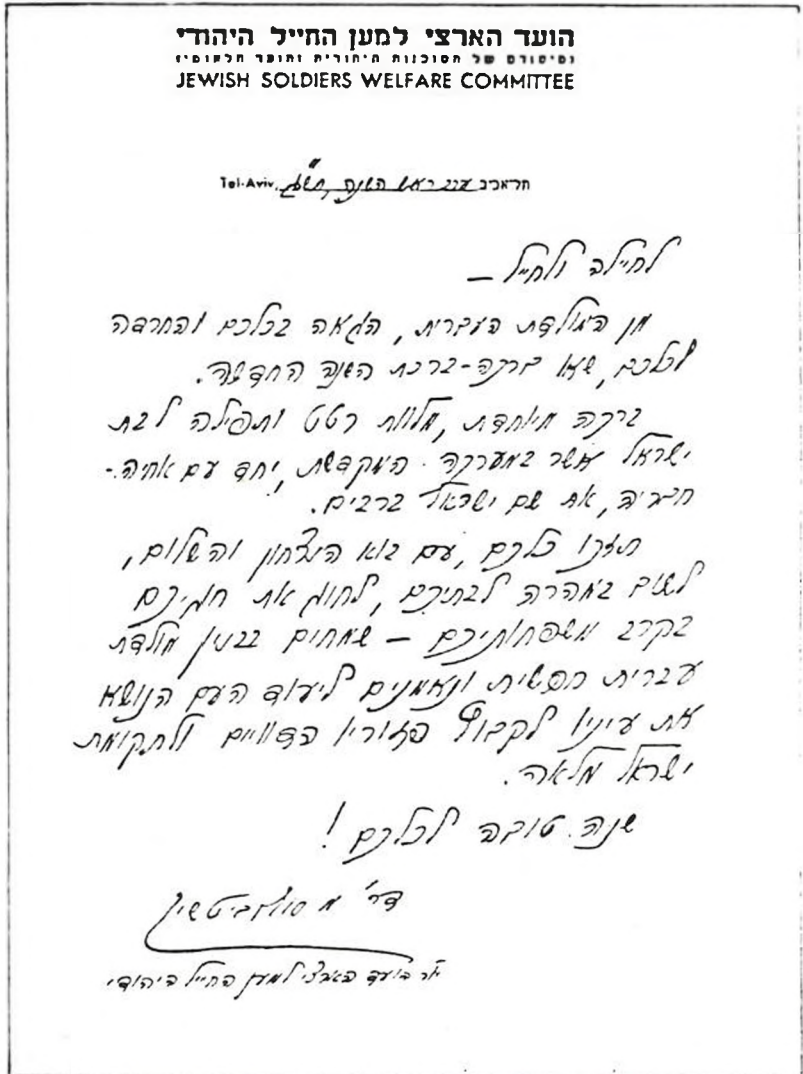 הועד הארצי למען החייל היהודי
של הסוכנות היהודית והועד הלאומי
JEWISH SOLDIERS WELFARE COMMITTEE
Tel-Aviv, ערב ראש השנה, תש"ג תל־אביב
לחילה ולחיל —
מן המולדת העברית, הגאה בכלכם והחרדה
לכלכם, שאו ברכה-ברכת השנה החדשה.
ברכה מיוחדת, מלווה רטט ותפילה לבת
ישראל אשר במערכה המקדשת, יחד עם אחיה-
חבריה, את שם ישראל ברבים.
תזכו כלכם, עם בוא הנצחון והשלום,
לשוב במהרה לבתיכם, לחוג את חגיכם
בקרב משפחותיכם — שמחים בבנין מולדת
עברית חפשית ונאמנים ליעוד העם הנושא
את עיניו לקבוץ פזוריו הדוויים ולתקומת
ישראל מלאה.
שנה טובה לכלכם!
דר' מ סולוביטשיק
יו"ר הועד הארצי למען החייל היהודי